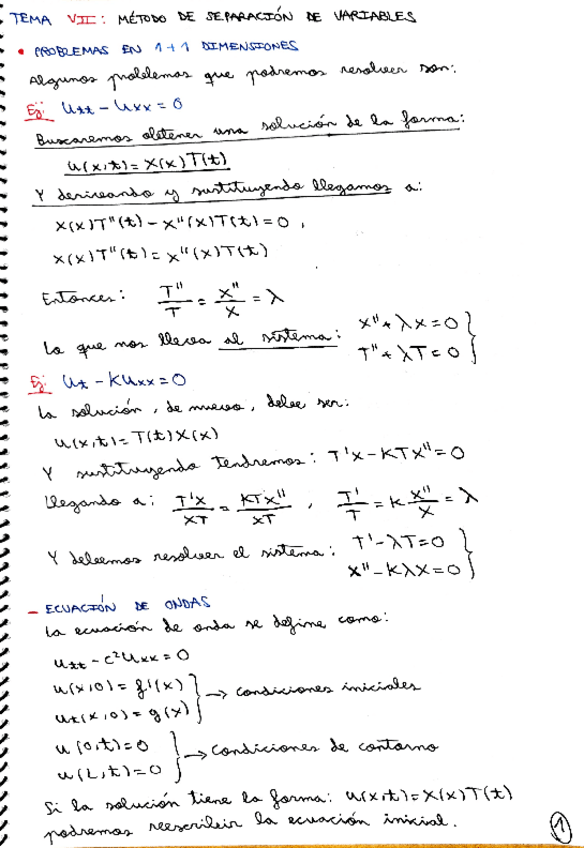 TEMA VII: MÉTODO DE SEPARACIÓN DE VARIABLES
• PROBLEMAS EN 1+1 DIMENSIONES
Algunos problemas que podremos resolver son:
Ej: Utt - Uxx = 0
Buscaremos obtener una solución de la forma:
u(x,t) = X(x)T(t)
Y derivando y sustituyendo llegamos a:
X(x)T''(t) - X''(x)T(t) = 0 ,
X(x)T''(t) = X''(x)T(t)
Entonces: T''/T = X''/X = λ
Lo que nos lleva al sistema: X'' + λX = 0 }
T'' + λT = 0 }
Ej: Ut - KUxx = 0
La solución, de nuevo, debe ser:
u(x,t) = T(t)X(x)
Y sustituyendo tendremos: T'X - KTX'' = 0
Llegando a: T'X/XT = KTX''/XT , T'/T = K X''/X = λ
Y debemos resolver el sistema: T' - λT = 0 }
X'' - KλX = 0 }
- ECUACIÓN DE ONDAS
La ecuación de onda se define como:
Utt - c²Uxx = 0
u(x,0) = f'(x) } → condiciones iniciales
Ut(x,0) = g(x) }
u(0,t) = 0 } → condiciones de contorno
u(L,t) = 0 }
Si la solución tiene la forma: u(x,t) = X(x)T(t)
podremos reescribir la ecuación inicial.
1